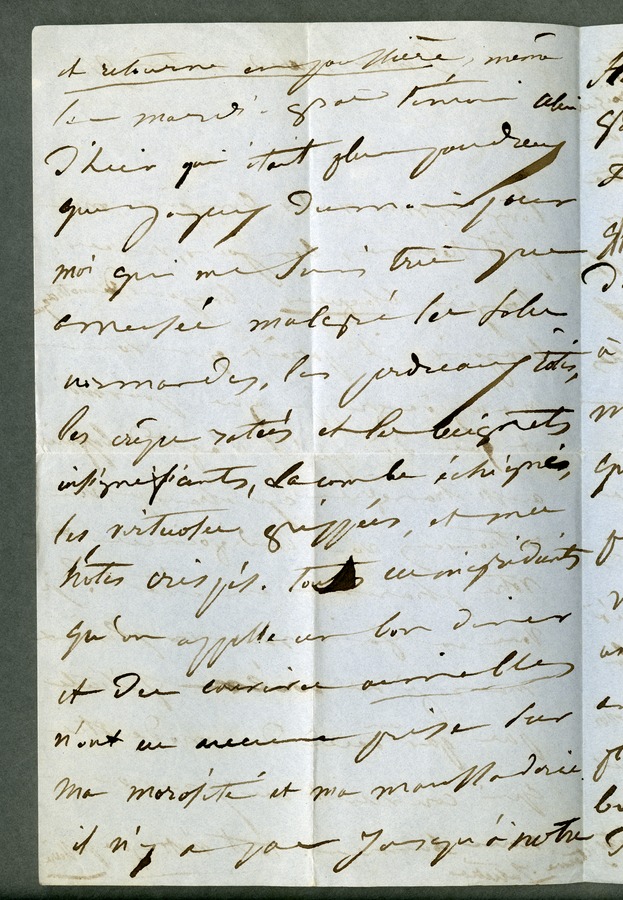 et retourne en poussière, même
les mardi-gras témoin celui
d'hier qui était plus poudreux
que joyeux du moins pour
moi qui me suis très peu
amusée malgré les soles
normandes, les perdreaux rôtis,
les crêpes ratées et les beignets
insignifiants, Lacombe échignés,
les virtuoses grippées, et mes
hôtes crispés. tous ces ingrédients
qu'on appelle un bon diner
et des convives
n'ont eu aucune prise sur
ma morosité et ma maussaderie
il n'y a pas jusqu'à notre